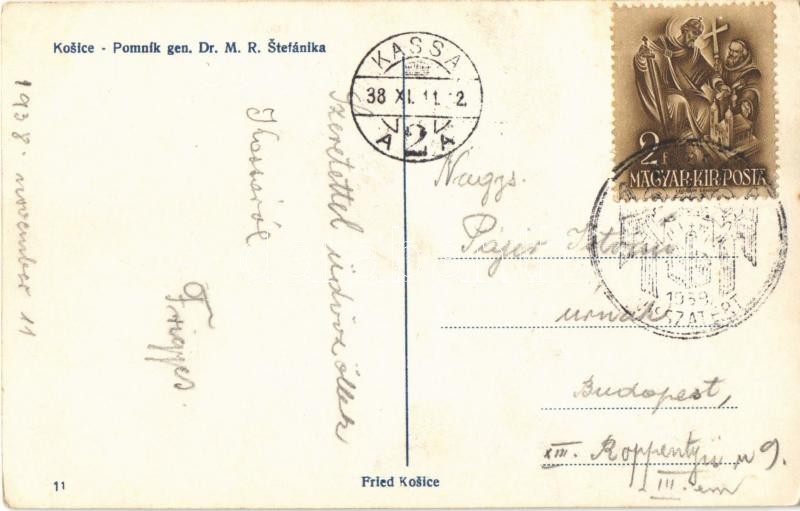 Košice - Pomník gen. Dr. M. R. Štefánika
KASSA
38 XI. 11. 12
A 2 A
2 f
MAGYAR·KIR·POSTA
1938
VISSZATÉRT
1938. november 11
Kassáról
Szeretettel üdvözöllek
Frigyes.
Nagys.
Pájer István
úrnak
Budapest,
XIII. Roppentyü u 9.
III. em
11
Fried Košice